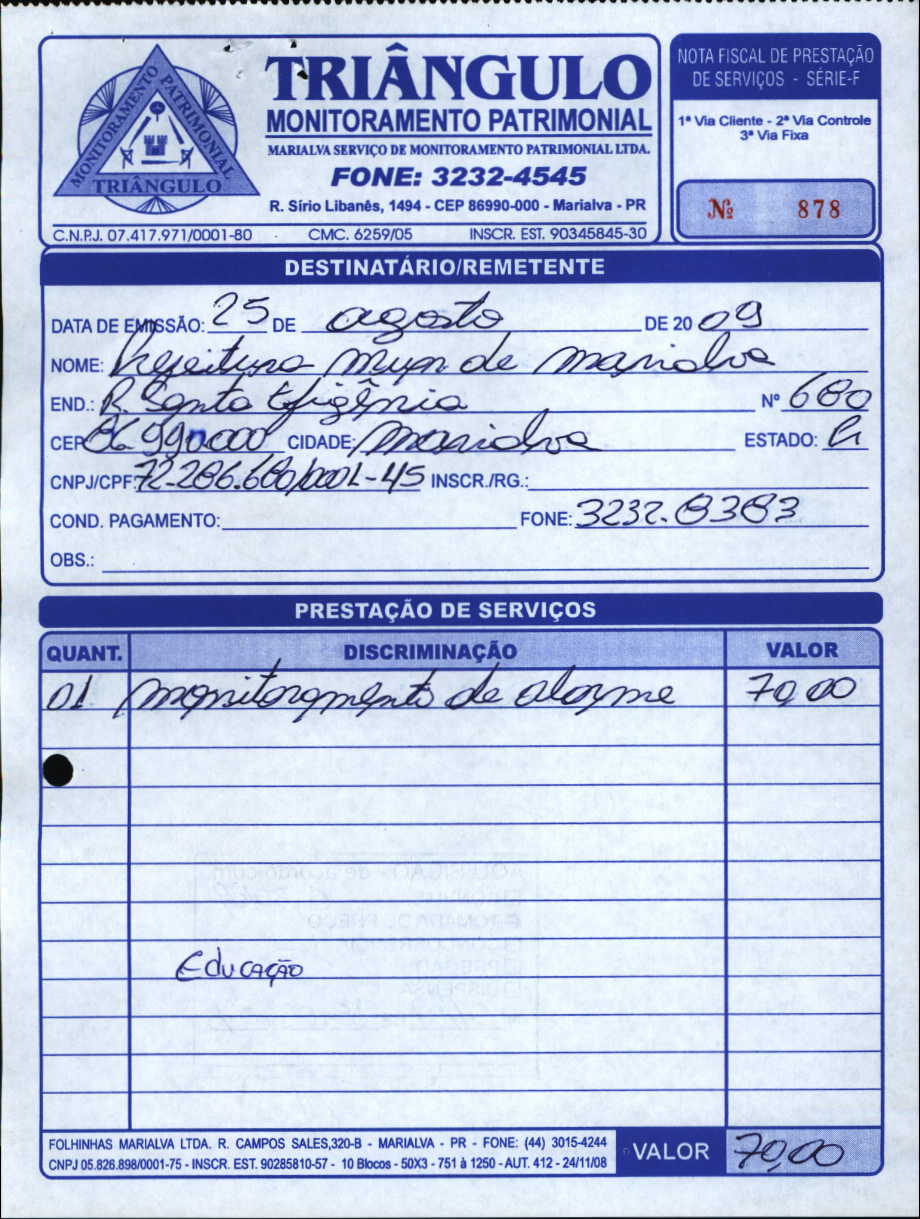 MONITORAMENTO PATRIMONIAL
TRIÂNGULO
TRIÂNGULO
MONITORAMENTO PATRIMONIAL
MARIALVA SERVIÇO DE MONITORAMENTO PATRIMONIAL LTDA.
FONE: 3232-4545
R. Sírio Libanês, 1494 - CEP 86990-000 - Marialva - PR
C.N.P.J. 07.417.971/0001-80 CMC. 6259/05 INSCR. EST. 90345845-30
NOTA FISCAL DE PRESTAÇÃO
DE SERVIÇOS - SÉRIE-F
1ª Via Cliente - 2ª Via Controle
3ª Via Fixa
Nº 878
DESTINATÁRIO/REMETENTE
DATA DE EMISSÃO: 25 DE agosto DE 2009
NOME: Prefeitura Mun de Marialva
END.: R. Santa Efigênia Nº 680
CEP 86990.000 CIDADE: Marialva ESTADO: Pr
CNPJ/CPF 72-286.680/0001-45 INSCR./RG.:
COND. PAGAMENTO: FONE: 3232.8383
OBS.:
PRESTAÇÃO DE SERVIÇOS
QUANT. DISCRIMINAÇÃO VALOR
01 monitoramento de alarme 70,00
Educação
FOLHINHAS MARIALVA LTDA. R. CAMPOS SALES,320-B - MARIALVA - PR - FONE: (44) 3015-4244
CNPJ 05.826.898/0001-75 - INSCR. EST. 90285810-57 - 10 Blocos - 50X3 - 751 à 1250 - AUT. 412 - 24/11/08
VALOR 70,00